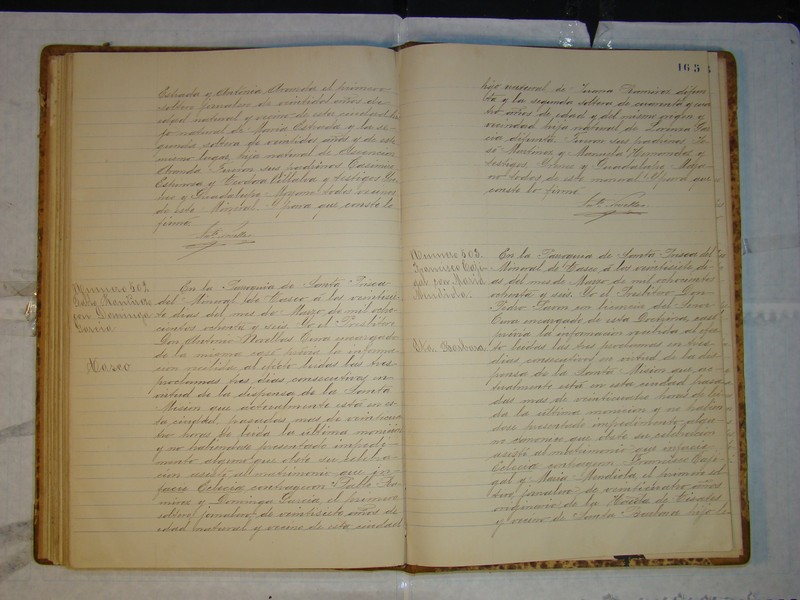 Estrada y Antonia Aranda el primero
soltero jornalero de veintidos años de
edad natural y vecino de esta ciudad hi-
jo natural de Maria Estrada y la se-
gunda soltera de veintidos años y de este
mismo lugar hija natural de Ascencion
Aranda. Fueron sus padrinos Casimiro
Esponosa y Teodora Villalva y testigos
y Guadalupe Moyano todos vecinos
de este Mineral. Y para que conste lo
firmo.
Numero 502.
Pablo Ramirez
con Dominga
Garcia
Taxco
En la Parroquia de Santa Prisca
del Mineral de Tasco á los veintisie-
te dias del mes de Marzo de mil ocho-
cientos ochenta y seis. Yo el Presbitero
Don Antonio Revellas Cura encargado
de la misma casé previa la informa-
cion recibida al efecto leidas las tres
proclamas tres dias consecutivos en
virtud de la dispensa de la Santa
Mision que actualmente está en es-
ta ciudad, pasadas mas de veinticua
tro horas de leida la última moniciòn
y no habiendose presentado impedi-
mento alguno que obste su celebra-
cion asistí al matrimonio que in
facie Eclecia contrageron Pablo Ra-
mirez y Dominga Garcia, el primero
soltero jornalero de veintisiete años de
edad natural y vecino de esta ciudad
165
hijo natural de Juana Ramirez difun-
ta y la segunda soltera de cuarenta y cua
tro años de edad y del mismo origen y
vecindad hija natural de Lorenza Gar
cia difunta. Fueron sus padrinos Jo-
sé Martinez y Manuela Hernandez y
testigos y Guadalupe Moya-
no todos de este mineral. Y para que
conste lo firmo.
Numero 503.
Francisco Caji-
gal con Maria
Mendiola.
Sta. Barbara.
En la Parroquia de Santa Prisca del
Mineral de Tasco á los veintisiete di-
as del mes de Marzo de mil ochocientos
ochenta y seis. Yo el Presbitero Don
Pedro Pavon en licencia del Señor
Cura encargado de esta Doctrina, casé
previa la informacion recibida al efec-
to leidas las tres proclamas en tres
dias consecutivos en virtud de la dis-
pensa de la Santa Mision que ac-
tualmente está en esta ciudad pasa-
das mas de veinticuatro horas de lei-
da la última monicion y no habien
dose presentado impedimento algu-
no canonico que obste su celebracion
asistí al matrimonio que infacie
Eclecia contrageron Francisco Caji-
gal y Maria Mendiola, el primero sol
tero jornalero de veinticuatro años
originario de la
y vecino de Santa Barbara hijo le